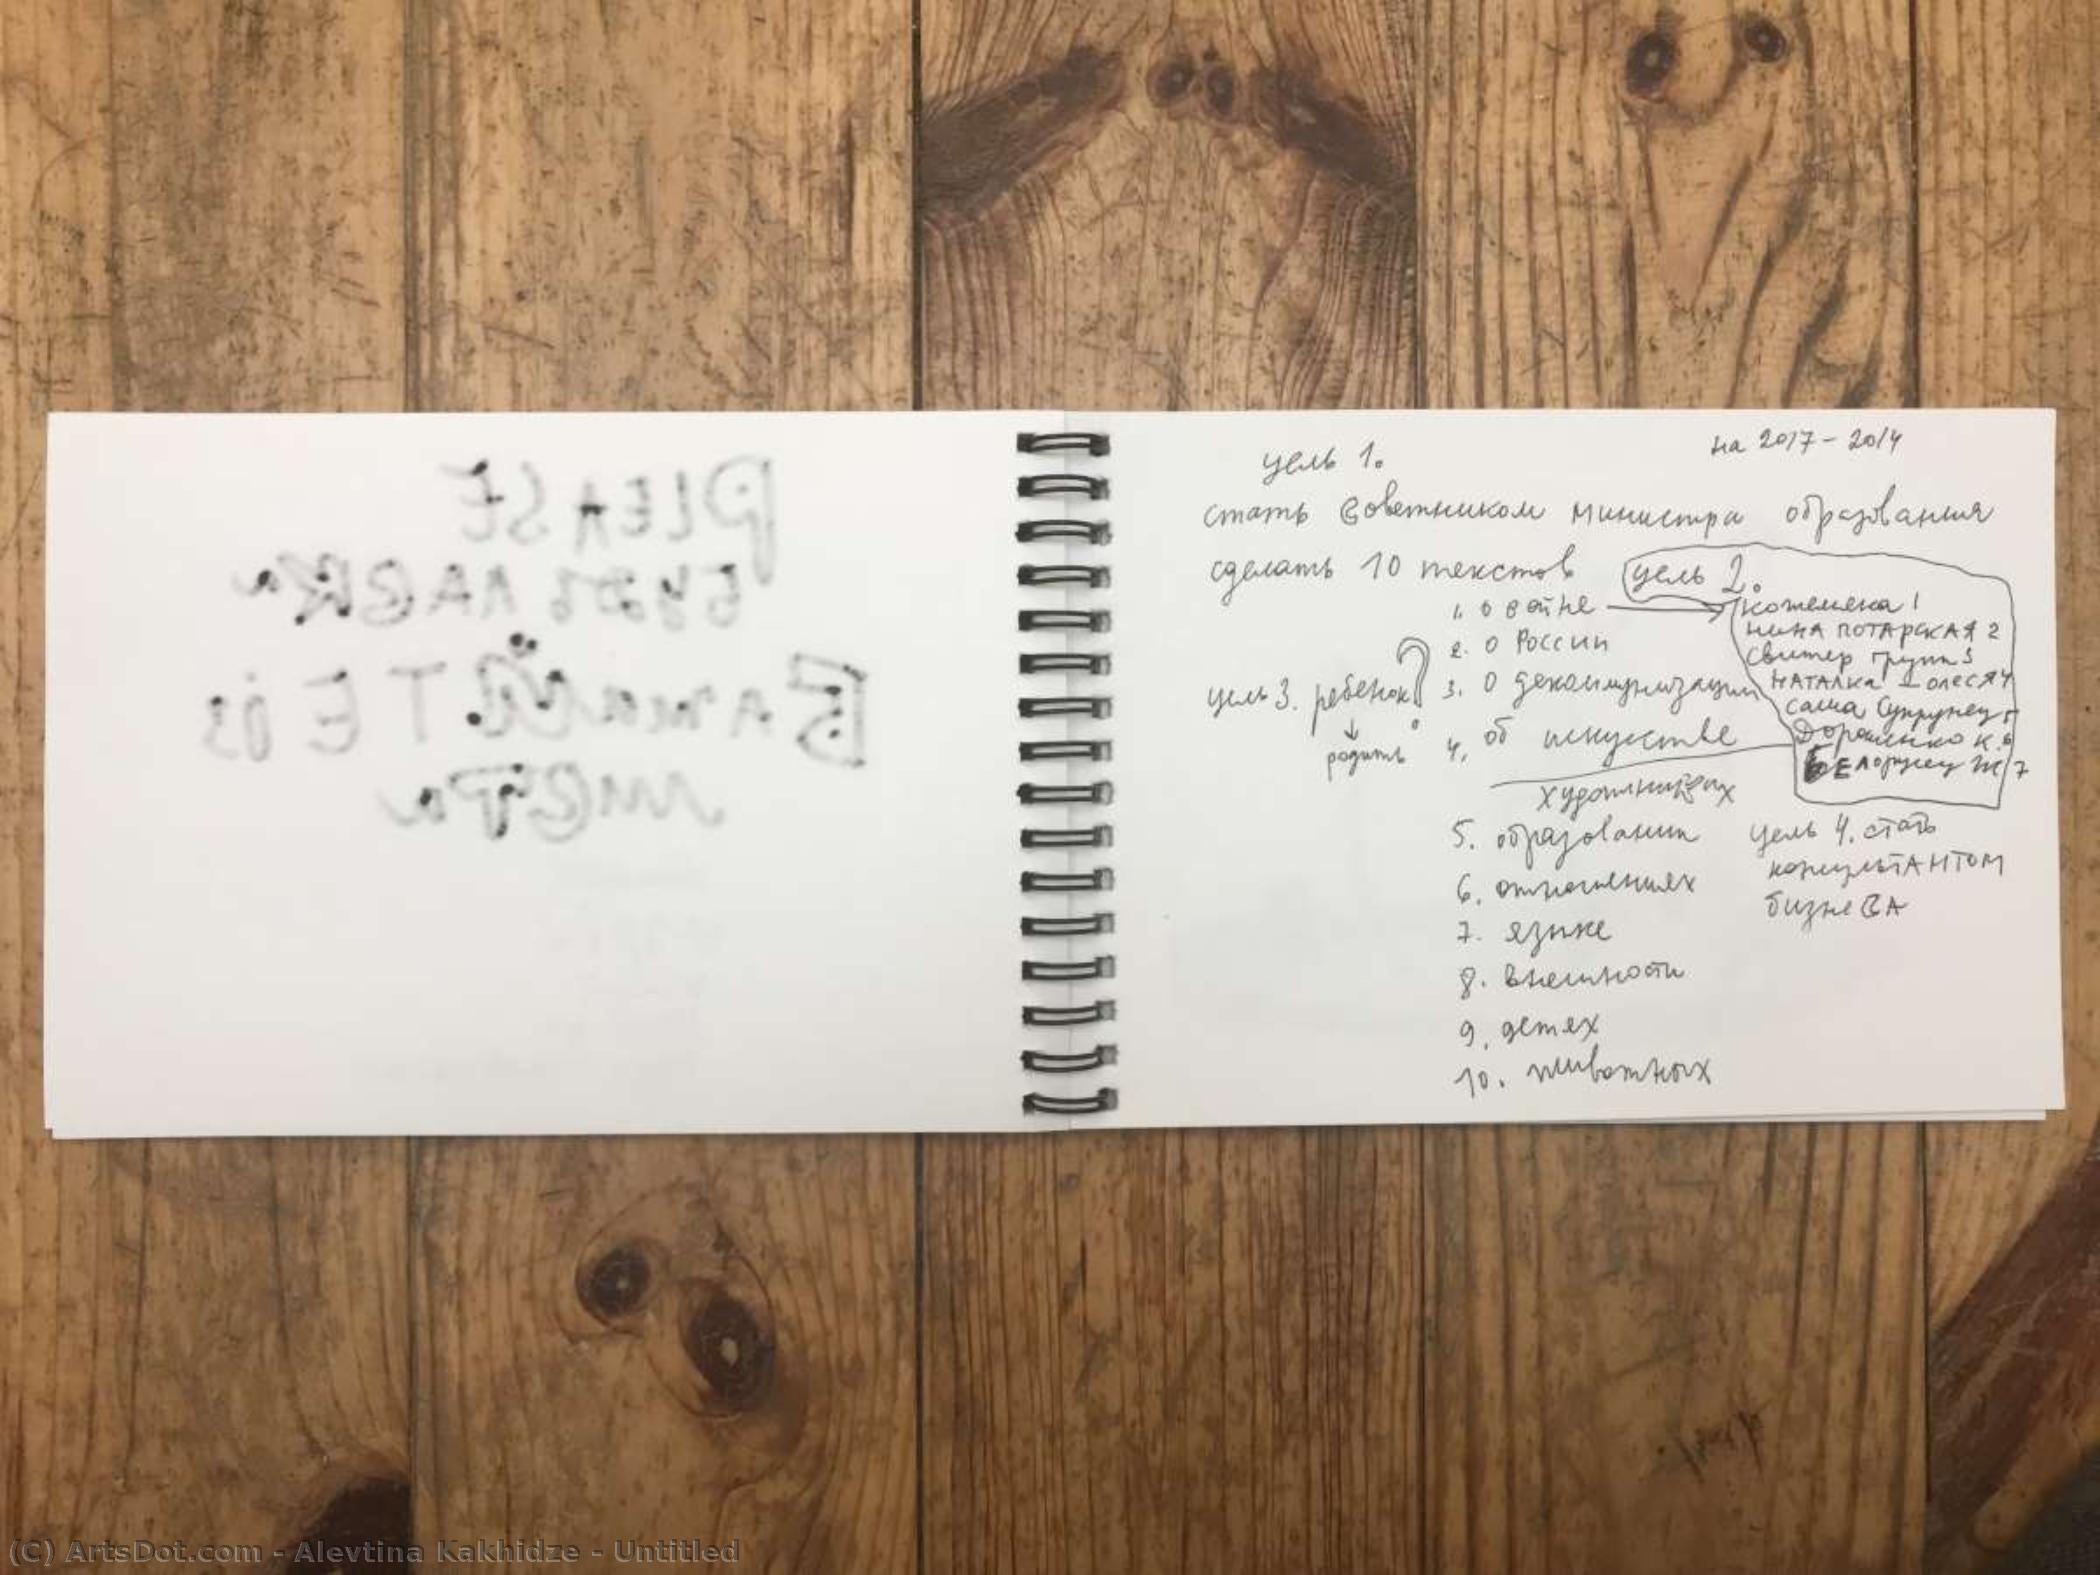 PLEASE
БУДЬ ЛАСКА
на 2017 - 2014
цель 1.
стать советником министра образования
сделать 10 текстов
цель 2.
1. о войне
кожемяка 1
2. о России
НИНА ПОТАРСКАЯ 2
свитер групп 3
цель 3. ребенок?
родить
3. о декоммунизации
НАТАЛКА ОЛЕСЯ 4
саша Супрунец 5
4. об искусстве
Дорошенко К. 6
БЕЛорусец Ж 7
художниках
5. образовании
6. отношениях
7. языке
8. внешности
9. детях
10. животных
цель 4. стать
консультАНТОМ
бизнеСА
(C) ArtsDot.com - Alevtina Kakhidze - Untitled